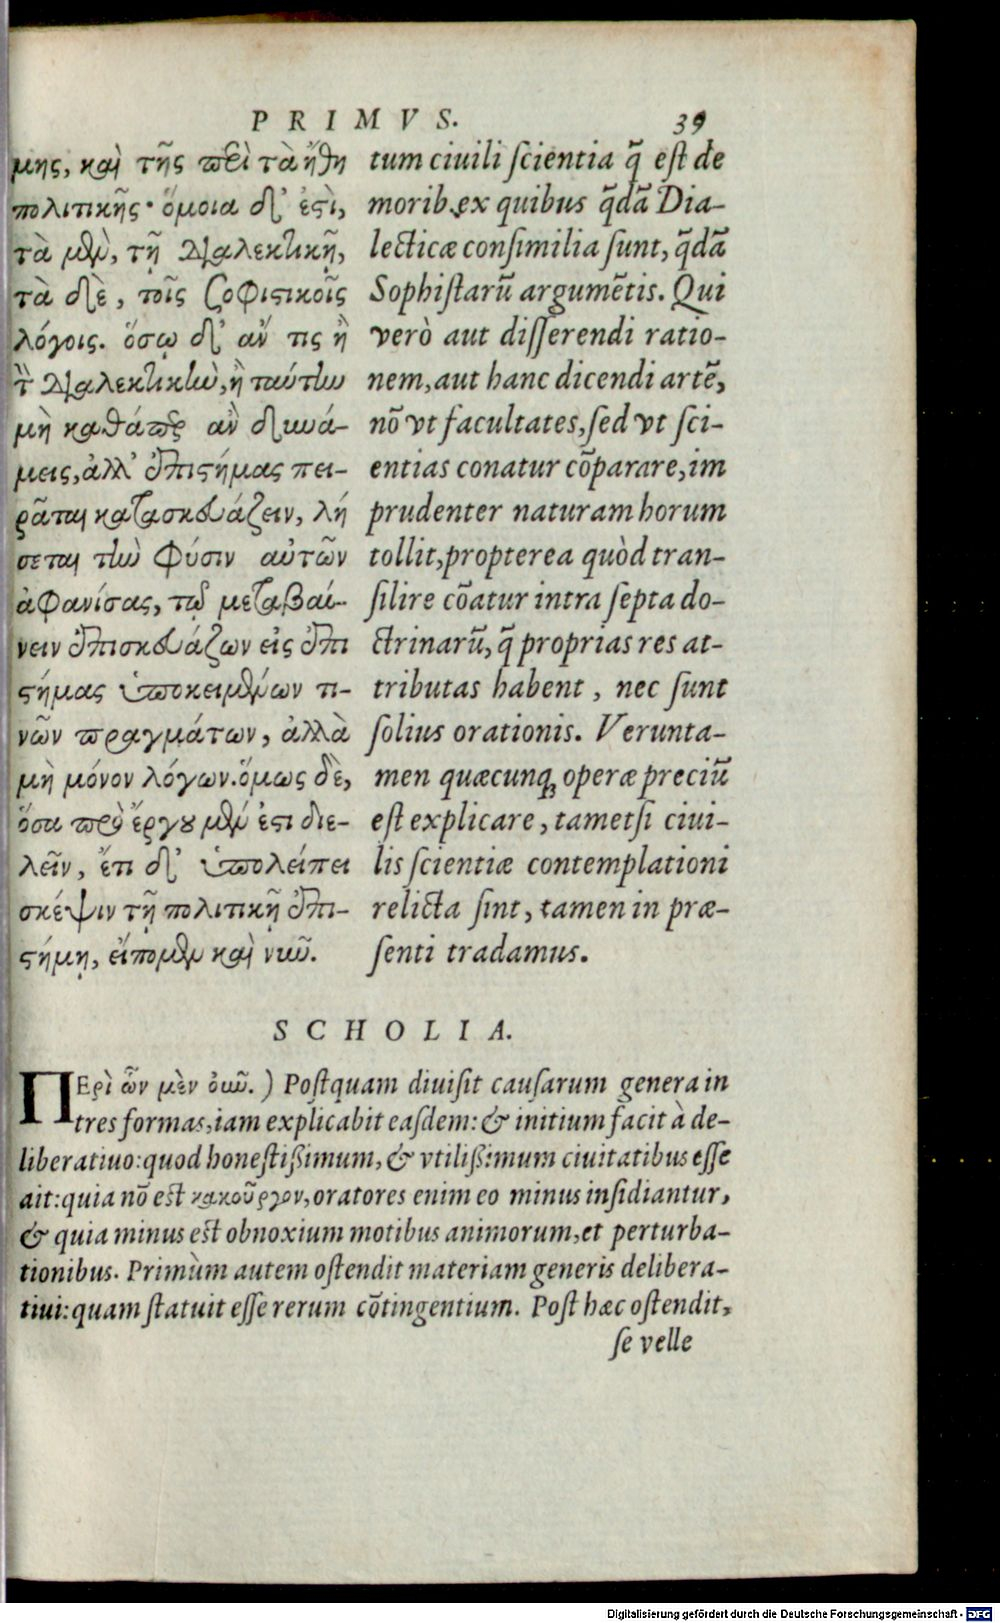 PRIMVS. 39
μης, καὶ τῆς περὶ τὰ ἤθη
πολιτικῆς· ὅμοια δ᾽ ἐστὶ,
τὰ μὲν, τῇ Διαλεκτικῇ,
τὰ δὲ, τοῖς σοφιστικοῖς
λόγοις. ὅσῳ δ᾽ ἄν τις ἢ
τὴν Διαλεκτικὴν, ἢ ταύτην
μὴ καθάπερ ἂν δυνά-
μεις, ἀλλ᾽ ἐπιστήμας πει-
ρᾶται κατασκευάζειν, λή
σεται τὴν φύσιν αὐτῶν
ἀφανίσας, τῷ μεταβαί-
νειν ἐπισκευάζων εἰς ἐπι
στήμας ὑποκειμένων τι-
νῶν πραγμάτων, ἀλλὰ
μὴ μόνον λόγων. ὅμως δὲ,
ὅσα πρὸ ἔργου μέν ἐστι διε-
λεῖν, ἔτι δ᾽ ὑπολείπει
σκέψιν τῇ πολιτικῇ ἐπι-
στήμῃ, εἴπομεν καὶ νῦν.
tum ciuili ſcientia q̃ eſt de
morib. ex quibus q̃dã Dia-
lecticæ conſimilia ſunt, q̃dã
Sophiſtarũ argumẽtis. Qui
verò aut diſſerendi ratio-
nem, aut hanc dicendi artẽ,
nõ vt facultates, ſed vt ſci-
entias conatur cõparare, im
prudenter naturam horum
tollit, propterea quòd tran-
ſilire cõatur intra ſepta do-
ctrinarũ, q̃ proprias res at-
tributas habent, nec ſunt
ſolius orationis. Verunta-
men quæcunq; operæ preciũ
eſt explicare, tametſi ciui-
lis ſcientiæ contemplationi
relicta ſint, tamen in præ-
ſenti tradamus.
SCHOLIA.
ΠΕρὶ ὧν μὲν οὖν.) Poſtquam diuiſit cauſarum genera in
tres formas, iam explicabit eaſdem: & initium facit à de-
liberatiuo: quod honeſtiſſimum, & vtiliſſimum ciuitatibus eſſe
ait: quia nõ eſt κακοῦργον, oratores enim eo minus inſidiantur,
& quia minus eſt obnoxium motibus animorum, et perturba-
tionibus. Primùm autem oſtendit materiam generis delibera-
tiui: quam ſtatuit eſſe rerum cõtingentium. Poſt hæc oſtendit,
ſe velle
Digitalisierung gefördert durch die Deutsche Forschungsgemeinschaft - DFG